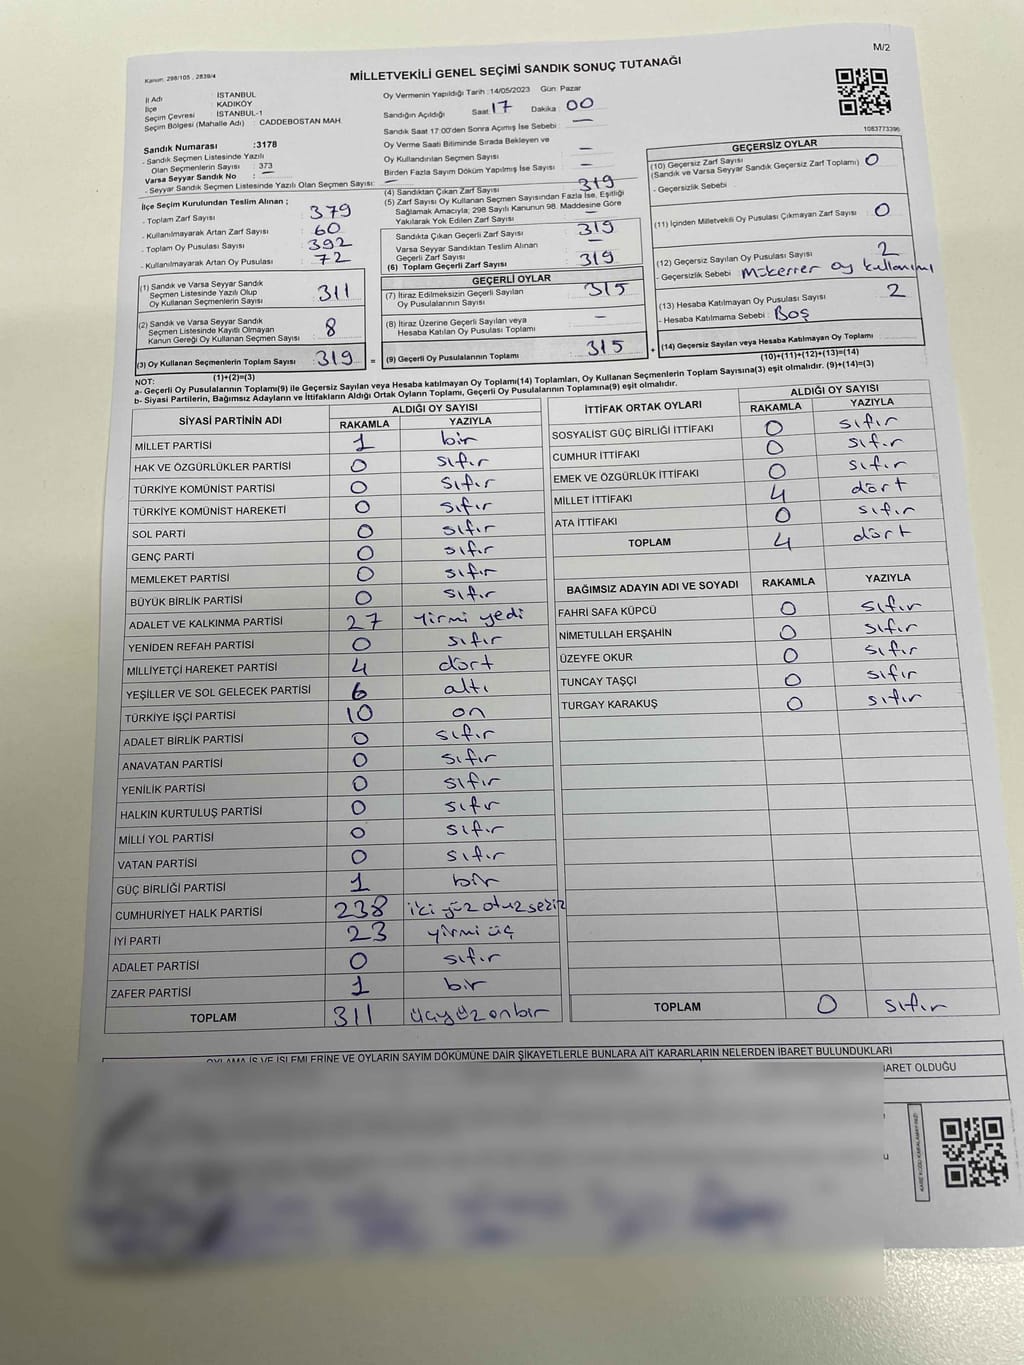 M/2
Kanun: 298/105 , 2839/4
MİLLETVEKİLİ GENEL SEÇİMİ SANDIK SONUÇ TUTANAĞI
İl Adı : İSTANBUL
İlçe : KADIKÖY
Seçim Çevresi : İSTANBUL-1
Seçim Bölgesi (Mahalle Adı) : CADDEBOSTAN MAH.
Sandık Numarası :3178
- Sandık Seçmen Listesinde Yazılı
Olan Seçmenlerin Sayısı : 373
Varsa Seyyar Sandık No : —
- Seyyar Sandık Seçmen Listesinde Yazılı Olan Seçmen Sayısı: —
İlçe Seçim Kurulundan Teslim Alınan ;
- Toplam Zarf Sayısı : 379
- Kullanılmayarak Artan Zarf Sayısı : 60
- Toplam Oy Pusulası Sayısı : 392
- Kullanılmayarak Artan Oy Pusulası : 72
(1) Sandık ve Varsa Seyyar Sandık
Seçmen Listesinde Yazılı Olup
Oy Kullanan Seçmenlerin Sayısı : 311
(2) Sandık ve Varsa Seyyar Sandık
Seçmen Listesinde Kayıtlı Olmayan
Kanun Gereği Oy Kullanan Seçmen Sayısı : 8
(3) Oy Kullanan Seçmenlerin Toplam Sayısı : 319 =
(1)+(2)=(3)
Oy Vermenin Yapıldığı Tarih :14/05/2023 Gün: Pazar
Sandığın Açıldığı Saat: 17 Dakika : 00
Sandık Saat 17:00'den Sonra Açımış İse Sebebi : —
Oy Verme Saati Bitiminde Sırada Bekleyen ve
Oy Kullandırılan Seçmen Sayısı : —
Birden Fazla Sayım Döküm Yapılmış İse Sayısı : —
(4) Sandıktan Çıkan Zarf Sayısı : 319
(5) Zarf Sayısı Oy Kullanan Seçmen Sayısından Fazla İse, Eşitliği
Sağlamak Amacıyla; 298 Sayılı Kanunun 98. Maddesine Göre
Yakılarak Yok Edilen Zarf Sayısı : —
Sandıkta Çıkan Geçerli Zarf Sayısı : 319
Varsa Seyyar Sandıktan Teslim Alınan
Geçerli Zarf Sayısı : —
(6) Toplam Geçerli Zarf Sayısı : 319
GEÇERLİ OYLAR
(7) İtiraz Edilmeksizin Geçerli Sayılan
Oy Pusulalarının Sayısı : 315
(8) İtiraz Üzerine Geçerli Sayılan veya
Hesaba Katılan Oy Pusulası Toplamı : —
(9) Geçerli Oy Pusulalarının Toplamı : 315 +
1083773396
GEÇERSİZ OYLAR
(10) Geçersiz Zarf Sayısı : 0
(Sandık ve Varsa Seyyar Sandık Geçersiz Zarf Toplamı)
- Geçersizlik Sebebi :
(11) İçinden Milletvekili Oy Pusulası Çıkmayan Zarf Sayısı : 0
(12) Geçersiz Sayılan Oy Pusulası Sayısı : 2
- Geçersizlik Sebebi : Mükerrer oy kullanımı
(13) Hesaba Katılmayan Oy Pusulası Sayısı : 2
- Hesaba Katılmama Sebebi : Boş
(14) Geçersiz Sayılan veya Hesaba Katılmayan Oy Toplamı :
(10)+(11)+(12)+(13)=(14)
NOT:
a- Geçerli Oy Pusulalarının Toplamı(9) ile Geçersiz Sayılan veya Hesaba katılmayan Oy Toplamı(14) Toplamları, Oy Kullanan Seçmenlerin Toplam Sayısına(3) eşit olmalıdır. (9)+(14)=(3)
b- Siyasi Partilerin, Bağımsız Adayların ve İttifakların Aldığı Ortak Oyların Toplamı, Geçerli Oy Pusulalarının Toplamına(9) eşit olmalıdır.
SİYASİ PARTİNİN ADI ALDIĞI OY SAYISI
RAKAMLA YAZIYLA
MİLLET PARTİSİ 1 bir
HAK VE ÖZGÜRLÜKLER PARTİSİ 0 sıfır
TÜRKİYE KOMÜNİST PARTİSİ 0 sıfır
TÜRKİYE KOMÜNİST HAREKETİ 0 sıfır
SOL PARTİ 0 sıfır
GENÇ PARTİ 0 sıfır
MEMLEKET PARTİSİ 0 sıfır
BÜYÜK BİRLİK PARTİSİ 0 sıfır
ADALET VE KALKINMA PARTİSİ 27 yirmi yedi
YENİDEN REFAH PARTİSİ 0 sıfır
MİLLİYETÇİ HAREKET PARTİSİ 4 dört
YEŞİLLER VE SOL GELECEK PARTİSİ 6 altı
TÜRKİYE İŞÇİ PARTİSİ 10 on
ADALET BİRLİK PARTİSİ 0 sıfır
ANAVATAN PARTİSİ 0 sıfır
YENİLİK PARTİSİ 0 sıfır
HALKIN KURTULUŞ PARTİSİ 0 sıfır
MİLLİ YOL PARTİSİ 0 sıfır
VATAN PARTİSİ 0 sıfır
GÜÇ BİRLİĞİ PARTİSİ 1 bir
CUMHURİYET HALK PARTİSİ 238 iki yüz otuz sekiz
İYİ PARTİ 23 yirmi üç
ADALET PARTİSİ 0 sıfır
ZAFER PARTİSİ 1 bir
TOPLAM 311 üçyüz onbir
İTTİFAK ORTAK OYLARI ALDIĞI OY SAYISI
RAKAMLA YAZIYLA
SOSYALİST GÜÇ BİRLİĞİ İTTİFAKI 0 sıfır
CUMHUR İTTİFAKI 0 sıfır
EMEK VE ÖZGÜRLÜK İTTİFAKI 0 sıfır
MİLLET İTTİFAKI 4 dört
ATA İTTİFAKI 0 sıfır
TOPLAM 4 dört
BAĞIMSIZ ADAYIN ADI VE SOYADI RAKAMLA YAZIYLA
FAHRİ SAFA KÜPCÜ 0 sıfır
NİMETULLAH ERŞAHİN 0 sıfır
ÜZEYFE OKUR 0 sıfır
TUNCAY TAŞÇI 0 sıfır
TURGAY KARAKUŞ 0 sıfır
TOPLAM 0 sıfır
OYLAMA İŞ VE İŞLEMLERİNE VE OYLARIN SAYIM DÖKÜMÜNE DAİR ŞİKAYETLERLE BUNLARA AİT KARARLARIN NELERDEN İBARET BULUNDUKLARI
BARET OLDUĞU